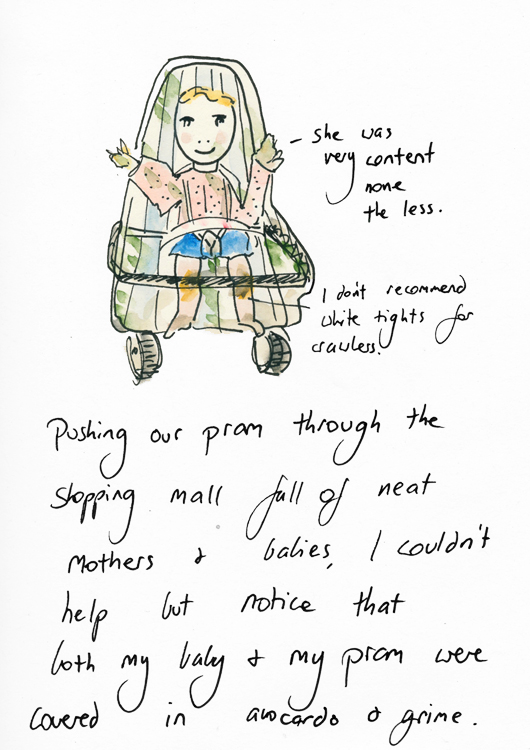 She was
very content
none
the less.
I don't recommend
white tights for
crawlers.
Pushing our pram through the
shopping mall full of neat
mothers & babies, I couldn't
help but notice that
both my baby & my pram were
covered in avocardo & grime.